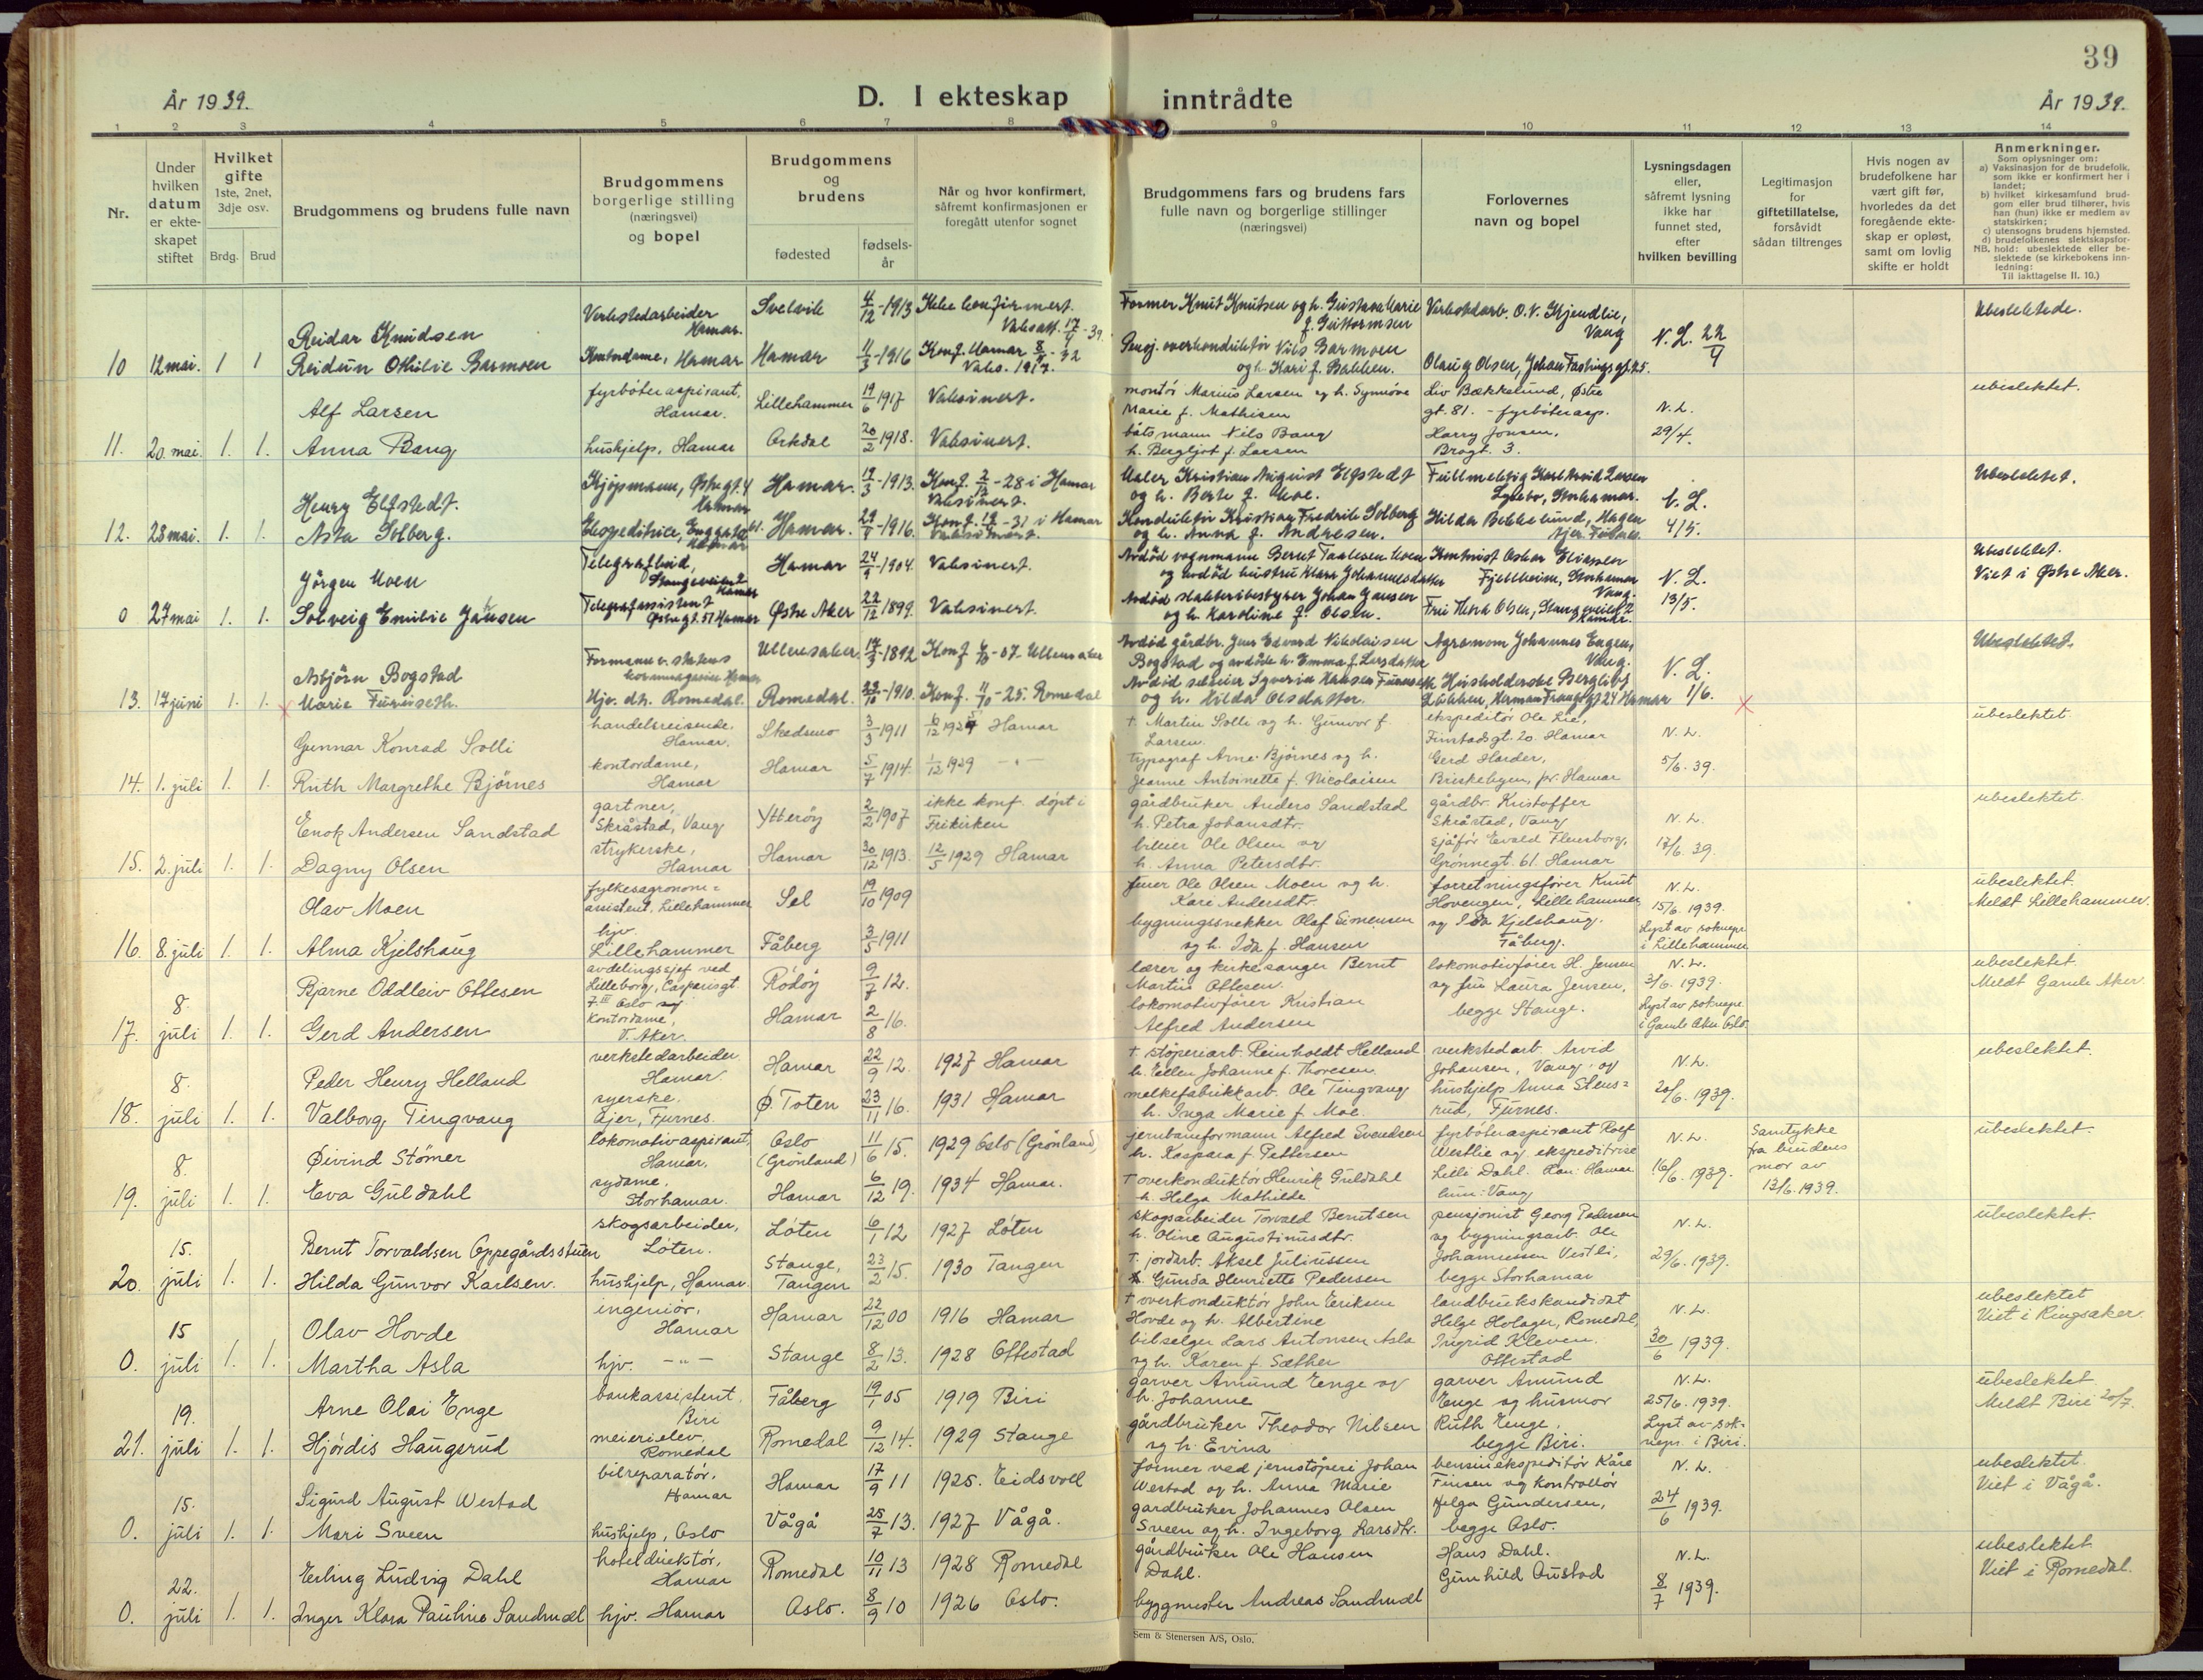 39
År 1939.
D. I ekteskap inntrådte
År 1939.
1 2 3 4 5 6 7 8 9 10 11 12 13 14
Nr.
Under hvilken datum er ekteskapet stiftet
Hvilket gifte
1ste, 2net, 3dje osv.
Brdg. Brud
Brudgommens og brudens fulle navn
Brudgommens borgerlige stilling (næringsvei) og bopel
Brudgommens og brudens
fødested
fødselsår
Når og hvor konfirmert, såfremt konfirmasjonen er foregått utenfor sognet
Brudgommens fars og brudens fars fulle navn og borgerlige stillinger (næringsvei)
Forlovernes navn og bopel
Lysningsdagen eller, såfremt lysning ikke har funnet sted, efter hvilken bevilling
Legitimasjon for giftetillatelse, forsåvidt sådan tiltrenges
Hvis nogen av brudefolkene har vært gift før, hvorledes da det foregående ekteskap er opløst, samt om lovlig skifte er holdt
Anmerkninger.
Som oplysninger om:
a) Vaksinasjon for de brudefolk, som ikke er konfirmert her i landet;
b) hvilket kirkesamfund brudgom eller brud tilhører, hvis han (hun) ikke er medlem av statskirken;
c) utensogns brudens hjemsted.
d) brudefolkenes slektskapsforhold: ubeslektede eller beslektede (se kirkebokens innledning:
NB. Til iakttagelse II. 10.)
Reidar Knudsen Verkstedarbeider Hamar. Svelvik 4/12-1913 Ikke konfirmert. Vaksatt. 17/4-39. Former Knut Knutsen og h. Gustava Marie f. Guttormsen Verkstedarb. O.V. Kjendlie, Vang N.L. 22/4 Ubeslektede.
10 12 mai. 1 1 Reidun Othilie Barmoen Kontordame, Hamar Hamar 11/3-1916 Konf. Hamar Vaks. 1917. Pensj. overkonduktør Nils Barmoen og h. Kari f. Bakken. Olaug Olsen, Johan Fastings gt. 25.
Alf Larsen fyrbøteraspirant, Hamar. Lillehammer 19/6 1917 Vaksinert. montør Marius Larsen og h. Synnøve Marie f. Mathisen Liv Bækkelund, Østre gt. 81. - fyrbøterasp. N.L. ubeslektet.
11. 20. mai. 1. 1. Anna Bang hushjelp, Hamar Orkdal 20/2 1918. Vaksinert. båtsmann Nils Bang h. Bergljot f. Larsen Harry Jonsen, Brogt. 3. 29/4.
Henry Elfstedt. Kjøpmann, Østregt. 4 Hamar Hamar. 19/3-1913. Konf. 2/12-28 i Hamar Vaksinert. Maler Kristian August Elfstedt og h. Berte f. Moe. Fullmektig Karl Arvid Larsen Lykke, Storhamar. N.L. Ubeslektet.
12. 28 mai. 1. 1. Asta Solberg. Ekspeditrice, Hamar Hamar. 29/4-1916. i Hamar Vaksinert. Konduktør Kristian Fredrik Solberg og h. Anna f. Andresen. Hilda Bekkelund, Hagen Ajer, Furnes. 4/5.
Jørgen Moen Telegrafbud, Stangeveien 2 Hamar Hamar 24/9-1904. Vaksinert. Avdød vognmann Bernt Taalesen Moen og avdød hustru Klara Johannesdatter Kontorist Oskar Eliassen Fjellheim, Storhamar Vang. N.L. Ubeslektet. Viet i Østre Aker.
0 27 mai 1. 1. Solveig Emilie Jansen Telegrafassistent Østregt. 57 Hamar Østre Aker 22/12 1899. Vaksinert. Avdød slakteribestyrer Johan Jansen og h. Karoline f. Olsen. Fru Thora Olsen, Stangeveien 2 Hamar. 13/5.
Asbjørn Bogstad Formann v. statens kornmagasin Hamar Ullensaker. 17/3-1892 Konf. -07- Ullensaker Avdød gårdbr. Jens Edvard Nikolaisen Bogstad og avdøde h. Emma f. Larsdatter Agronom Johannes Engen, Vang. N.L. Ubeslektet.
13. 17 juni 1. 1. Marie Furuseth. Hjv. dtr. Romedal. Romedal. 23/10-1910. Konf. 11/10-25. Romedal Avdød selveier Syverin Hansen Furuseth og h. Hilda Olsdatter. Husholderske Bergliot Løkken, Herman Foss gt 24 Hamar 1/6.
Gunnar Konrad Solli handelsreisende. Hamar. Skedsmo 3/3 1911 6/12 1925 Hamar † Martin Solli og h. Gunvor f. Larsen. ekspeditør Ole Lie, Finstadsgt. 20. Hamar N.L. ubeslektet.
14. 1. juli 1. 1. Ruth Margrethe Bjørnes kontordame, Hamar Hamar 5/7 1914. 1/12 1929 -"- typograf Arne Bjørnes og h. Jeanne Antoinette f. Nicolaisen Gerd Harder, Briskebyen, pr. Hamar 5/6. 39.
Enok Andersen Sandstad gartner, Skråstad, Vang Ytterøy 2/2 1907 ikke konf. døpt i Frikirken gårdbruker Anders Sandstad h. Petra Johansdtr. gårdbr. Kristoffer Skråstad, Vang N.L. ubeslektet.
15. 2. juli 1. 1. Dagny Olsen strykerske, Hamar Hamar 30/12 1913. 12/5 1929 Hamar bileier Ole Olsen og h. Anna Petersdtr. sjåfør Evald Flensborg, Grønnegt. 61. Hamar 17/6. 39.
Olav Moen fylkesagronomassistent, Lillehammer Sel 19/10 1909 Ole Olsen Moen og h. Kari Andersdtr. forretningsfører Knut Hovengen, Lillehammer N.L. 15/6. 1939. ubeslektet. Meldt Lillehammer.
16. 8. juli 1. 1. Alma Kjelshaug hjv. Lillehammer Fåberg 3/5 1911 bygningssnekker Olaf Simensen og h. Ida f. Hansen og Ida Kjelshaug. Fåberg. Lyst av sokнepr. i Lillehammer
Bjarne Oddleiv Ottesen avdelingssjef ved Lilleborg, Casparisgt 7 III Oslo og Rödöy 9/7 12. lærer og kirkesanger Bernt Martin Ottesen. lokomotivfører H. Jensen og fru Laura Jensen, N.L. 3/6. 1939. ubeslektet Meldt Gamle Aker
17. 8. juli 1. 1. Gerd Andersen Kontordame, V. Aker. Hamar 2/8 16. lokomotivfører Kristian Alfred Andersen begge Stange. Lyst av soknepr. i Gamle Aker Oslo.
Peder Henry Helland verkstedarbeider Hamar. Hamar 22/9 12. 1927 Hamar † støperiarb. Reinholdt Helland h. Ellen Johanne f. Thoresen. verkstedarb. Arvid Johansen, Vang, og N.L. ubeslektet.
18. 8. juli 1. 1. Valborg Tingvang syerske. Ajer, Furnes. Ø. Toten 23/11 16. 1931 Hamar melkefabrikkarb. Ole Tingvang h. Inga Marie f. Moe. hushjelp Anna Stensrud, Furnes. 20/6. 1939.
Øivind Stømer lokomotivaspirant, Hamar. Oslo (Grønland) 11/6 15. 1929 Oslo (Grønland) jernbaneformann Alfred Svendsen h. Kaspara f. Pettersen fyrbøteraspirant Rolf Westlie og ekspeditrise N.L. Samtykke fra brudens mor av 13/6. 1939. ubeslektet.
19. 8. juli 1. 1. Eva Guldahl sydame. Storhamar. Hamar 6/12 19. 1934 Hamar. † overkonduktør Henrik Guldahl h. Helga Mathilde Lilli Dahl. Han: Hamar hun: Vang 16/6. 1939.
Bernt Torvaldsen Oppegårdsstuen skogsarbeider, Løten. Løten 6/1 12 1927 Løten skogsarbeider Torvald Berntsen h. Oline Augustinusdtr. pensjonist Georg Pedersen og bygningsarb. Ole N.L. ubeslektet.
20. 15. juli 1. 1. Hilda Gunvor Karlsen. hushjelp, Hamar Stange, Tangen 23/2 15. 1930 Tangen † jordarb. Aksel Juliussen h. Gunda Henriette Pedersen Johannessen Vestli, begge Storhamar 29/6. 1939.
Olav Hovde ingeniør, Hamar Hamar 22/12 00 1916 Hamar † overkonduktør John Eriksen Hovde og h. Albertine landbrukskandidat Helge Holager, Romedal, N.L. ubeslektet Viet i Ringsaker.
0. 15 juli 1. 1. Martha Asla hjv. -"- Stange 8/2 13. 1928 Ottestad bilselger Lars Antonsen Asla og h. Karen f. Sæther Ingrid Kleven. Ottestad 30/6 1939.
Arne Olai Enge bankassistent, Biri Fåberg 19/1 05 1919 Biri garver Amund Enge og h. Johanne garver Amund Enge og husmor N.L. 25/6. 1939. ubeslektet Meldt Biri 20/7.
21. 19. juli 1. 1. Hjørdis Haugerud meierielev. Romedal Romedal 9/12 14. 1929 Stange gårdbruker Theodor Nilsen og h. Evina Ruth Enge, begge Biri. Lyst av soknepr. i Biri.
Sigurd August Westad bilreparatør, Hamar Hamar 17/9 11 1925. Eidsvoll former ved jernstøperi Johan Westad og h. Anna Marie bensinekspeditør Kåre Finsen og kontrollør N.L. ubeslektet. Viet i Vågå.
0. 15. juli 1. 1. Mari Sveen hushjelp, Oslo Vågå 25/7 13. 1927 Vågå. gardbruker Johannes Olsen Sveen og h. Ingeborg Larsdtr. Helga Gundersen, begge Oslo. 24/6 1939.
Erling Ludvig Dahl hoteldirektør, Hamar Romedal 10/11 13 1928 Romedal gårdbruker Ole Hansen Dahl. Hans Dahl. N.L. ubeslektet Viet i Romedal.
0. 22. juli 1. 1. Inger Klara Pauline Sandrudt hjv. Hamar Oslo. 8/9 10 1926 Oslo. byggmester Andreas Sandrudt Gunhild Austad 8/7 1939.
Sem & Stenersen A/S, Oslo.